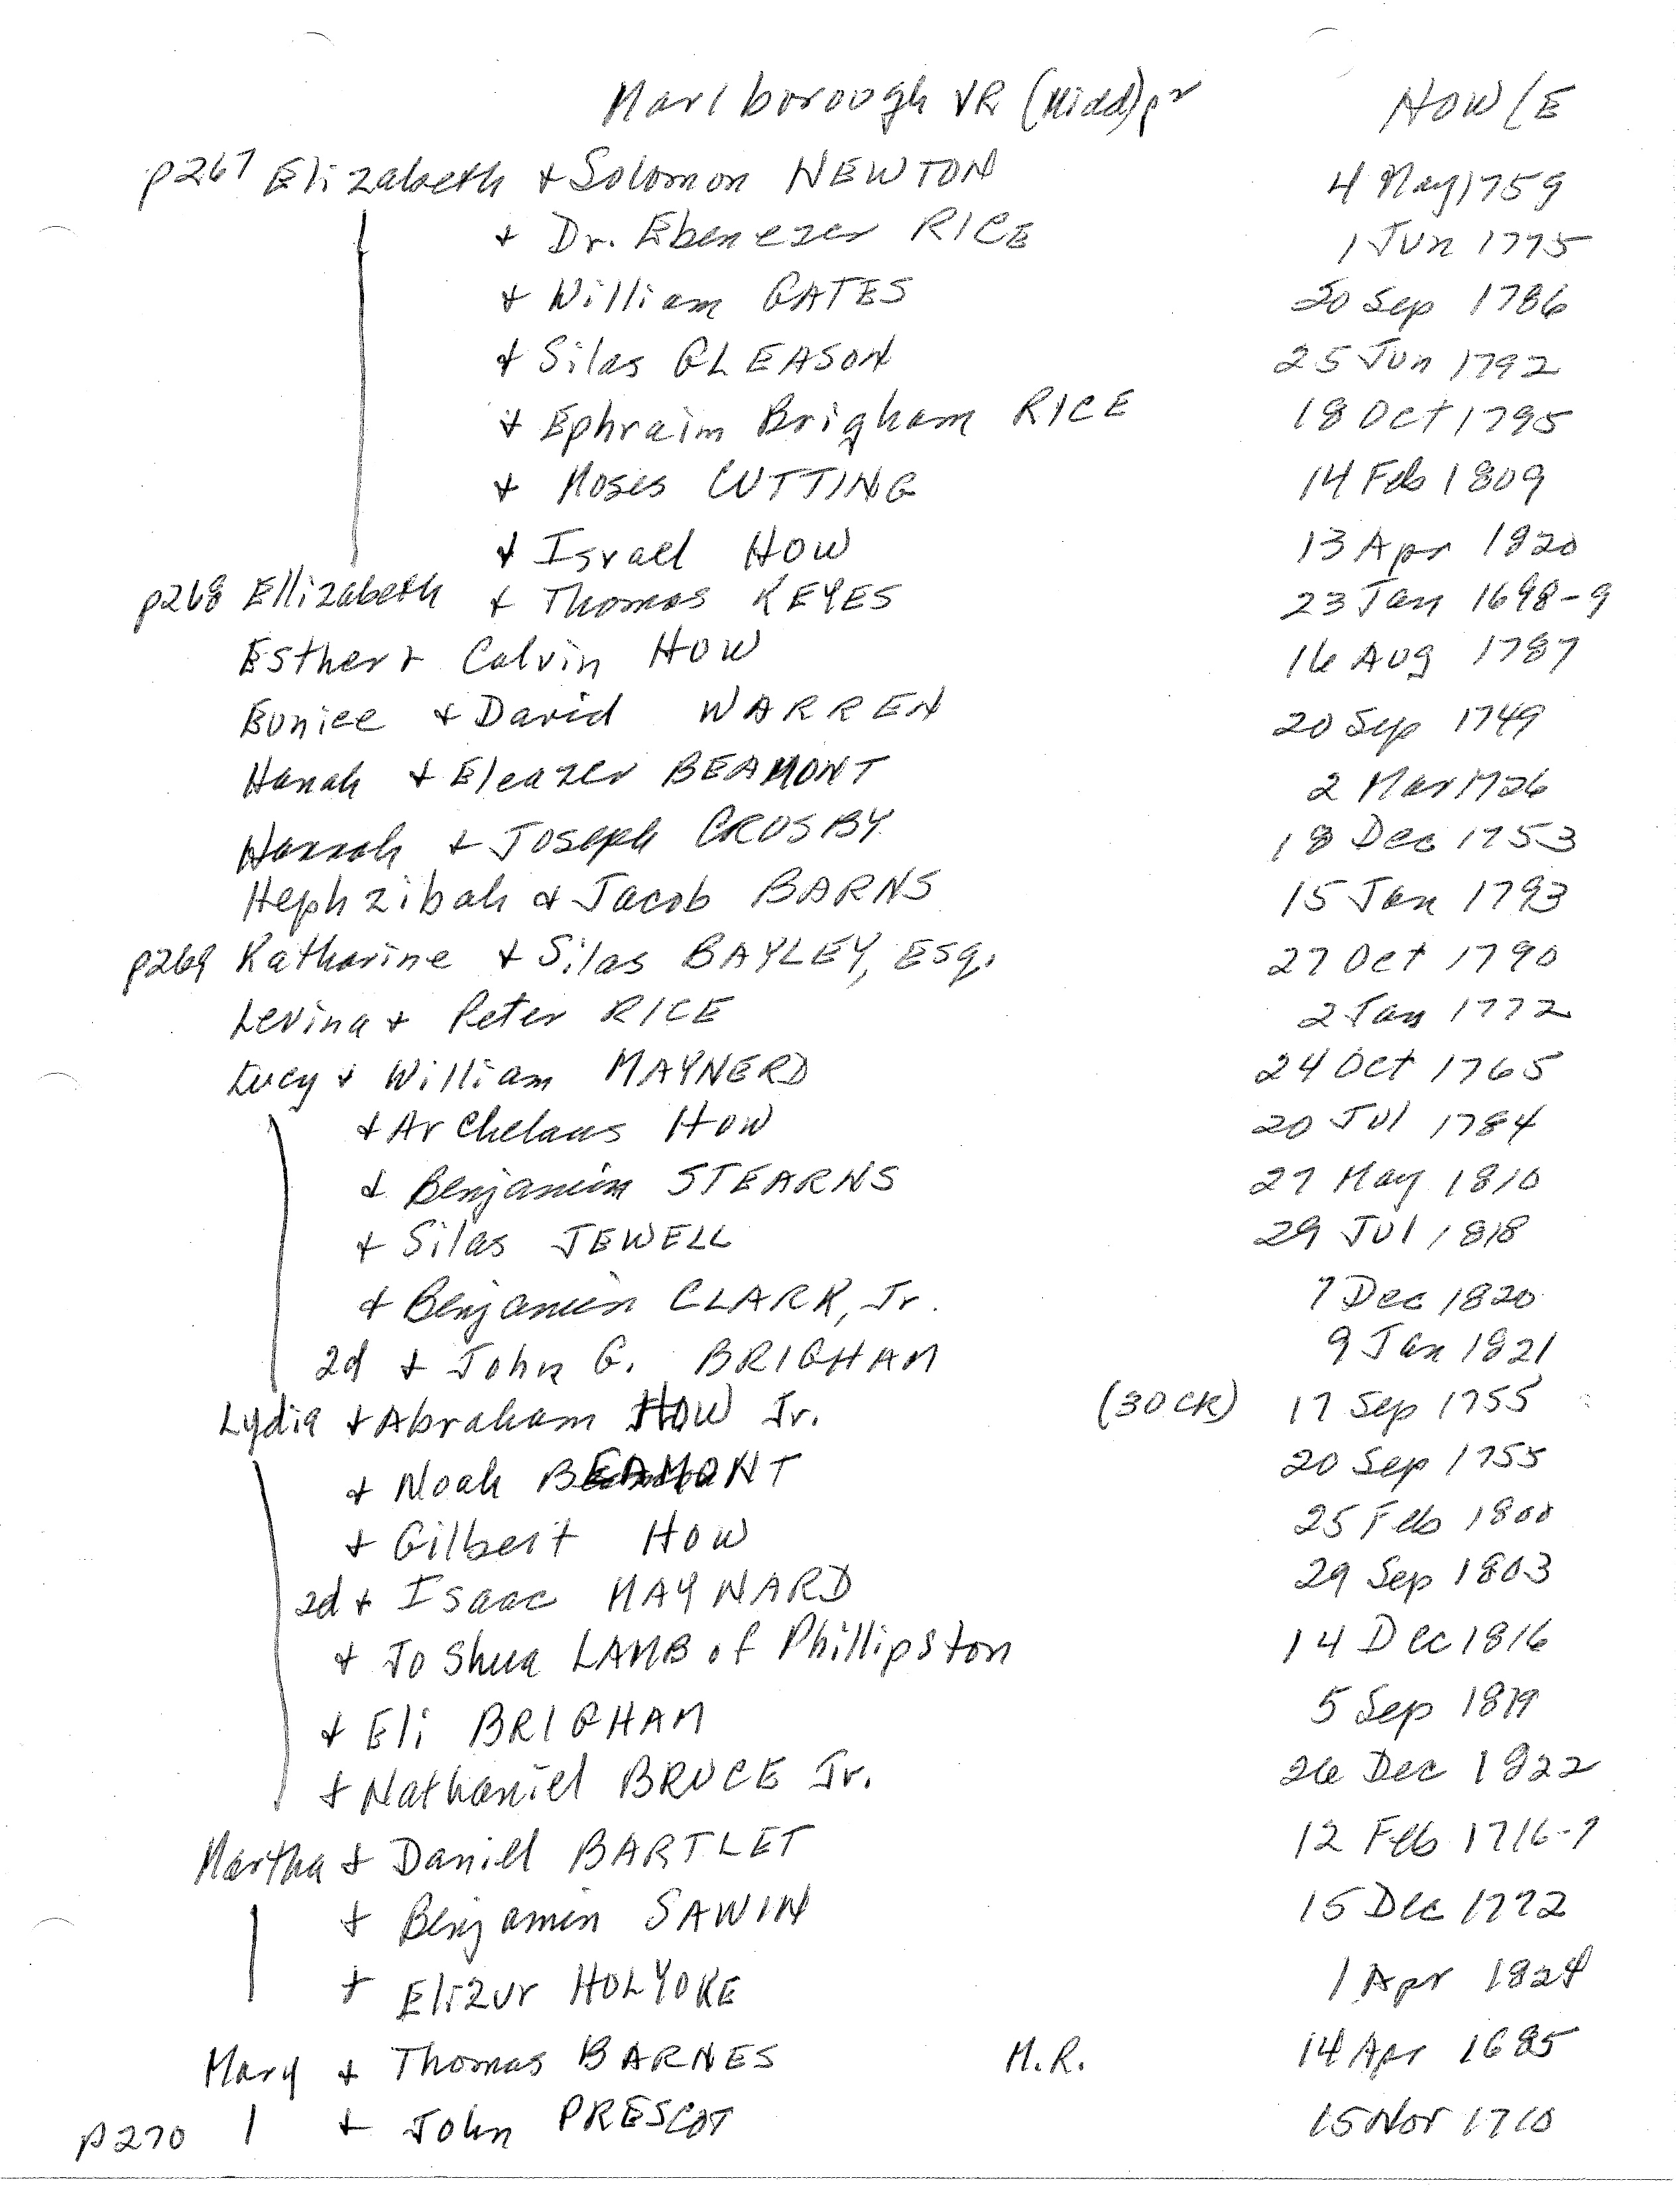 Marlborough VR (Midd) p2 HOW/E
p267 Elizabeth + Solomon NEWTON 4 May 1759
+ Dr. Ebenezer RICE 1 Jun 1775
+ William GATES 20 Sep 1786
+ Silas GLEASON 25 Jun 1792
+ Ephraim Brigham RICE 18 Oct 1795
+ Moses CUTTING 14 Feb 1809
+ Israel HOW 13 Apr 1820
p268 Ellizabeth + Thomas KEYES 23 Jan 1698-9
Esther + Calvin HOW 16 Aug 1787
Eunice + David WARREN 20 Sep 1749
Hanah + Eleazer BEAMONT 2 Mar 1726
Hannah + Joseph CROSBY 18 Dec 1753
Hephzibah + Jacob BARNS 15 Jan 1793
p269 Katharine + Silas BAYLEY, Esq. 27 Oct 1790
Levina + Peter RICE 2 Jan 1772
Lucy + William MAYNERD 24 Oct 1765
+ Archelaus HOW 20 Jul 1784
+ Benjamin STEARNS 27 May 1810
+ Silas JEWELL 29 Jul 1818
+ Benjamin CLARK, Jr. 7 Dec 1820
2d + John G. BRIGHAM 9 Jan 1821
Lydia + Abraham HOW Jr. (30 CR) 17 Sep 1755
+ Noah BEAMONT 20 Sep 1755
+ Gilbert HOW 25 Feb 1800
2d + Isaac MAYNARD 29 Sep 1803
+ Joshua LAMB of Phillipston 14 Dec 1816
+ Eli BRIGHAM 5 Sep
+ Nathaniel BRUCE Jr. 26 Dec 1822
Martha + Daniel BARTLET 12 Feb 1716-7
+ Benjamin SAWIN 15 Dec 1772
+ Elizur HOLYOKE 1 Apr 1824
Mary + Thomas BARNES M.R. 14 Apr 1685
p270 + John PRESCOT 15 Nov 1710